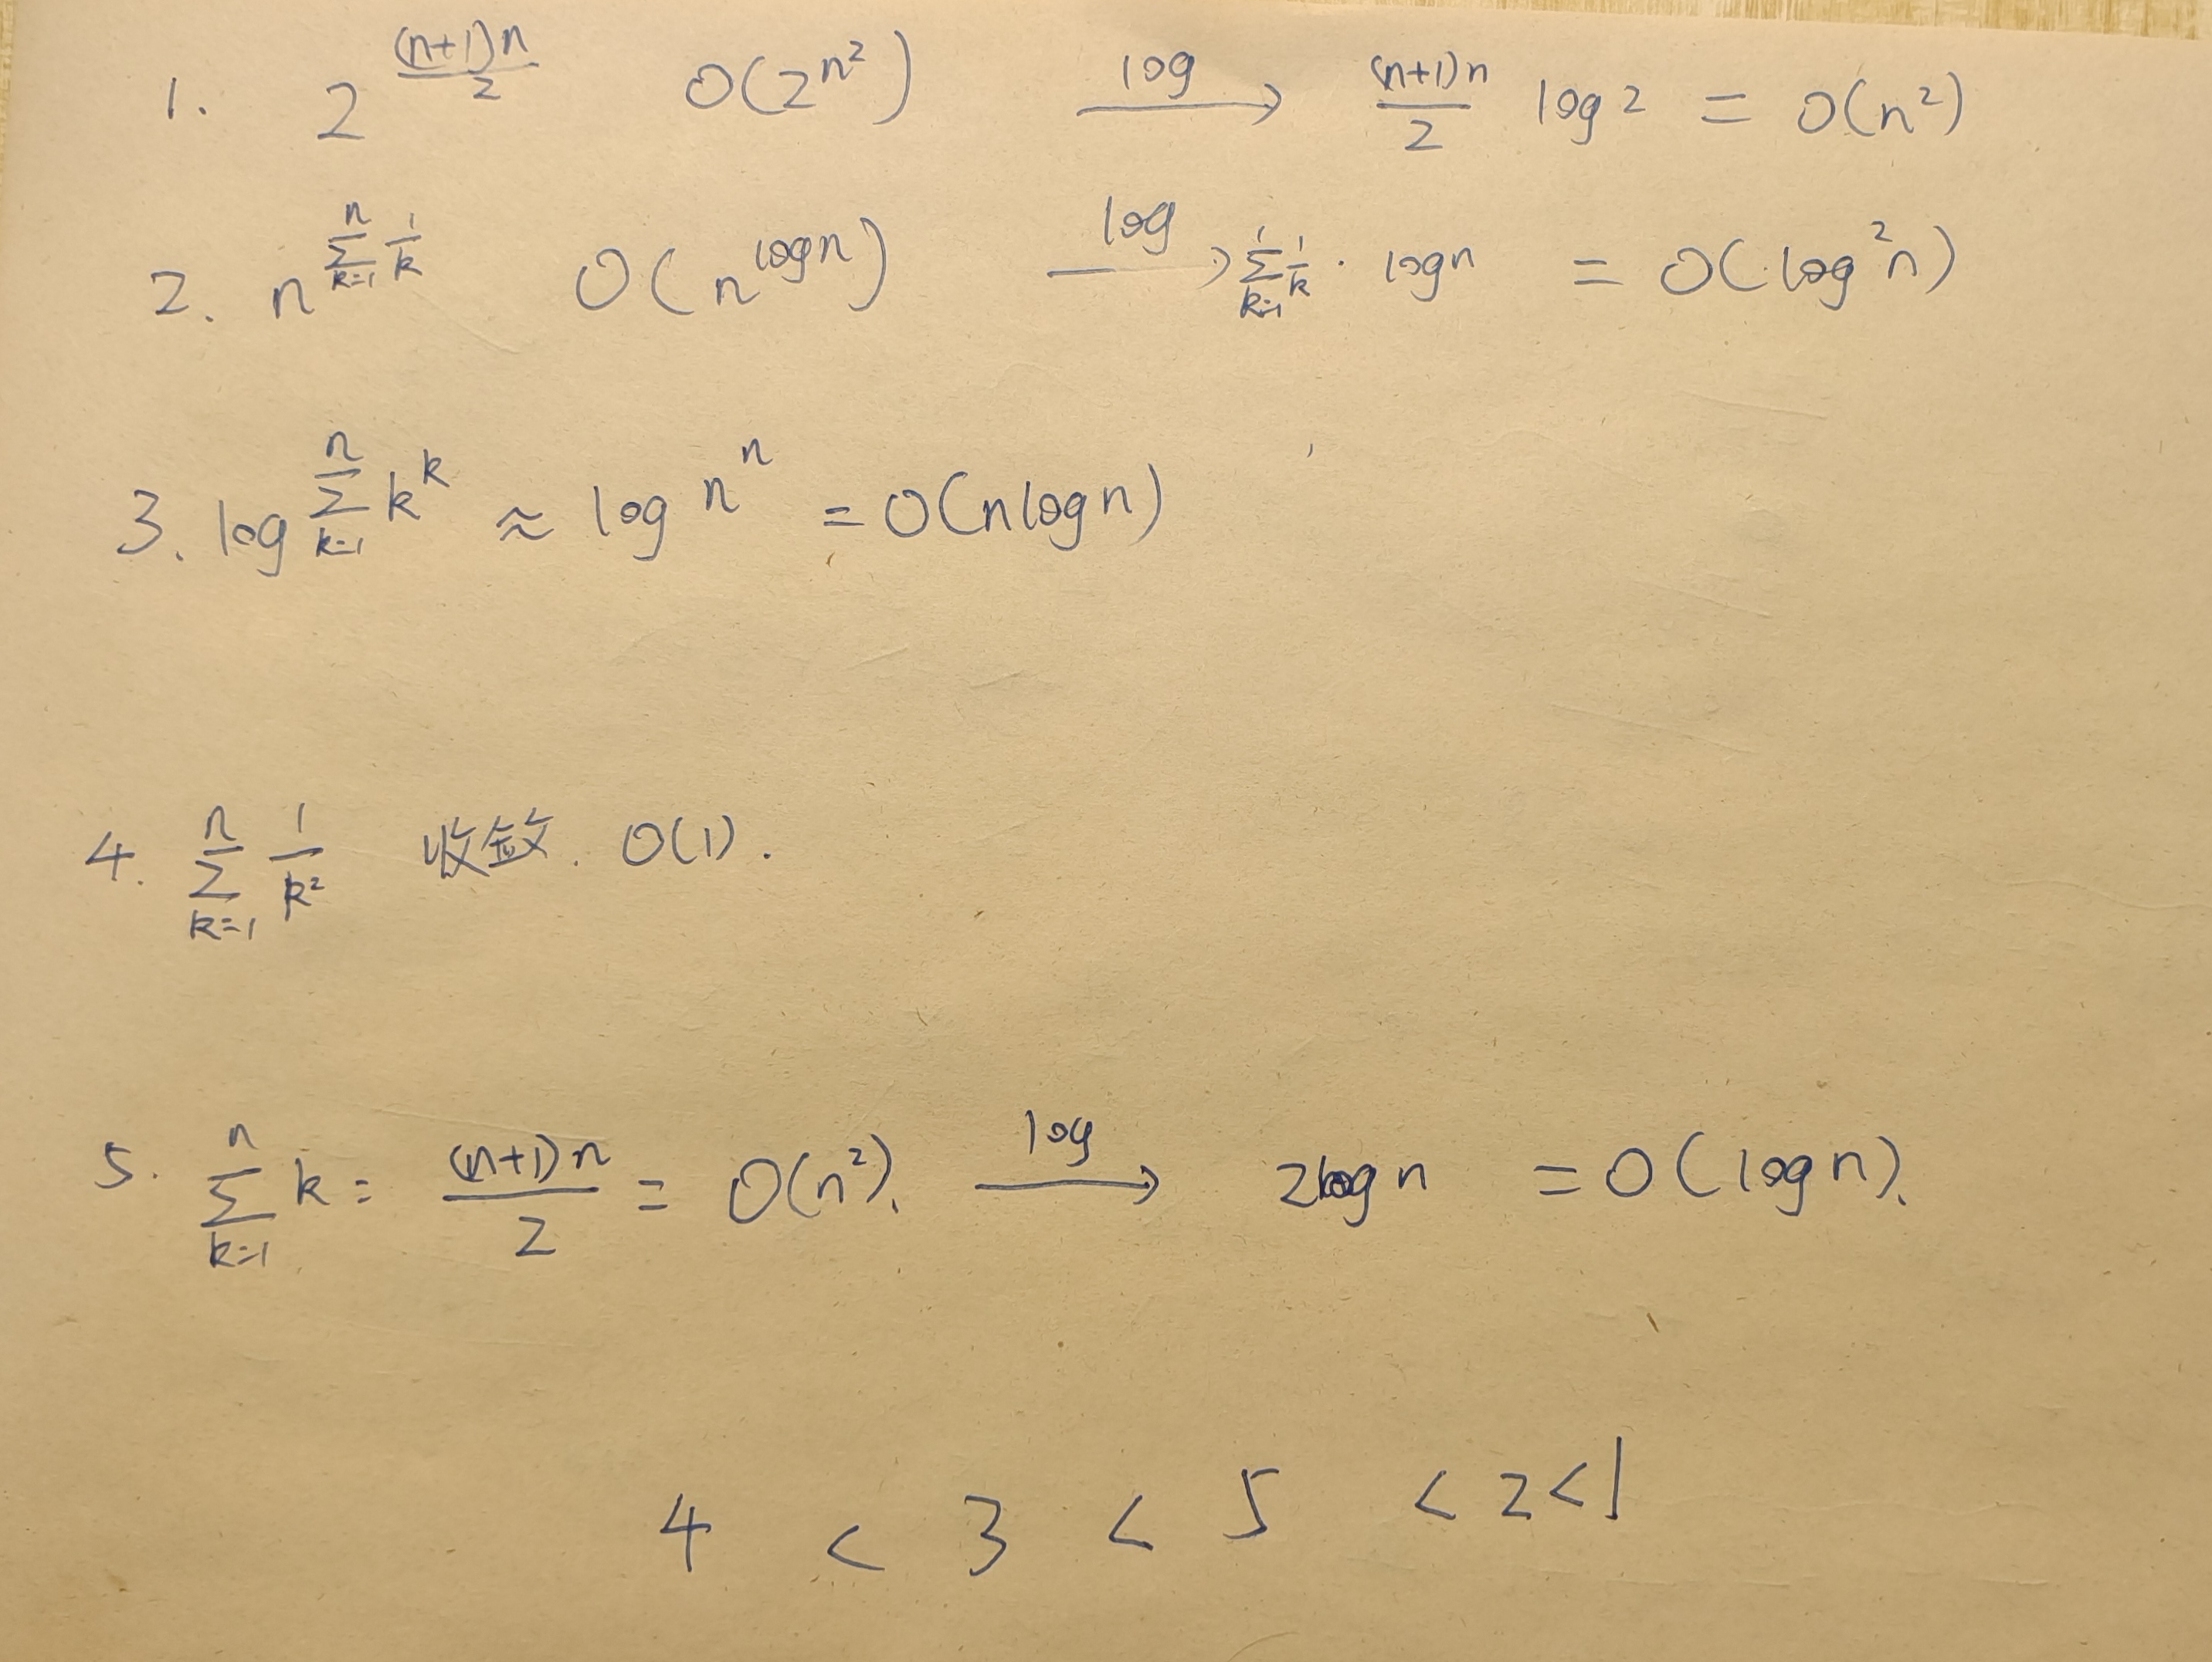 1. 2^{\frac{(n+1)n}{2}} O(2^{n^2}) \xrightarrow{log} \frac{(n+1)n}{2} log 2 = O(n^2)
2. n^{\sum_{k=1}^{n} \frac{1}{k}} O(n^{log n}) \xrightarrow{log} \sum_{k=1}^{1} \frac{1}{k} · log n = O(log^2 n)
3. log \sum_{k=1}^{n} k^k ≈ log n^n = O(n log n)
4. \sum_{k=1}^{n} \frac{1}{k^2} 收敛. O(1).
5. \sum_{k=1}^{n} k = \frac{(n+1)n}{2} = O(n^2). \xrightarrow{log} 2log n = O(log n).
4 < 3 < 5 < 2 < 1